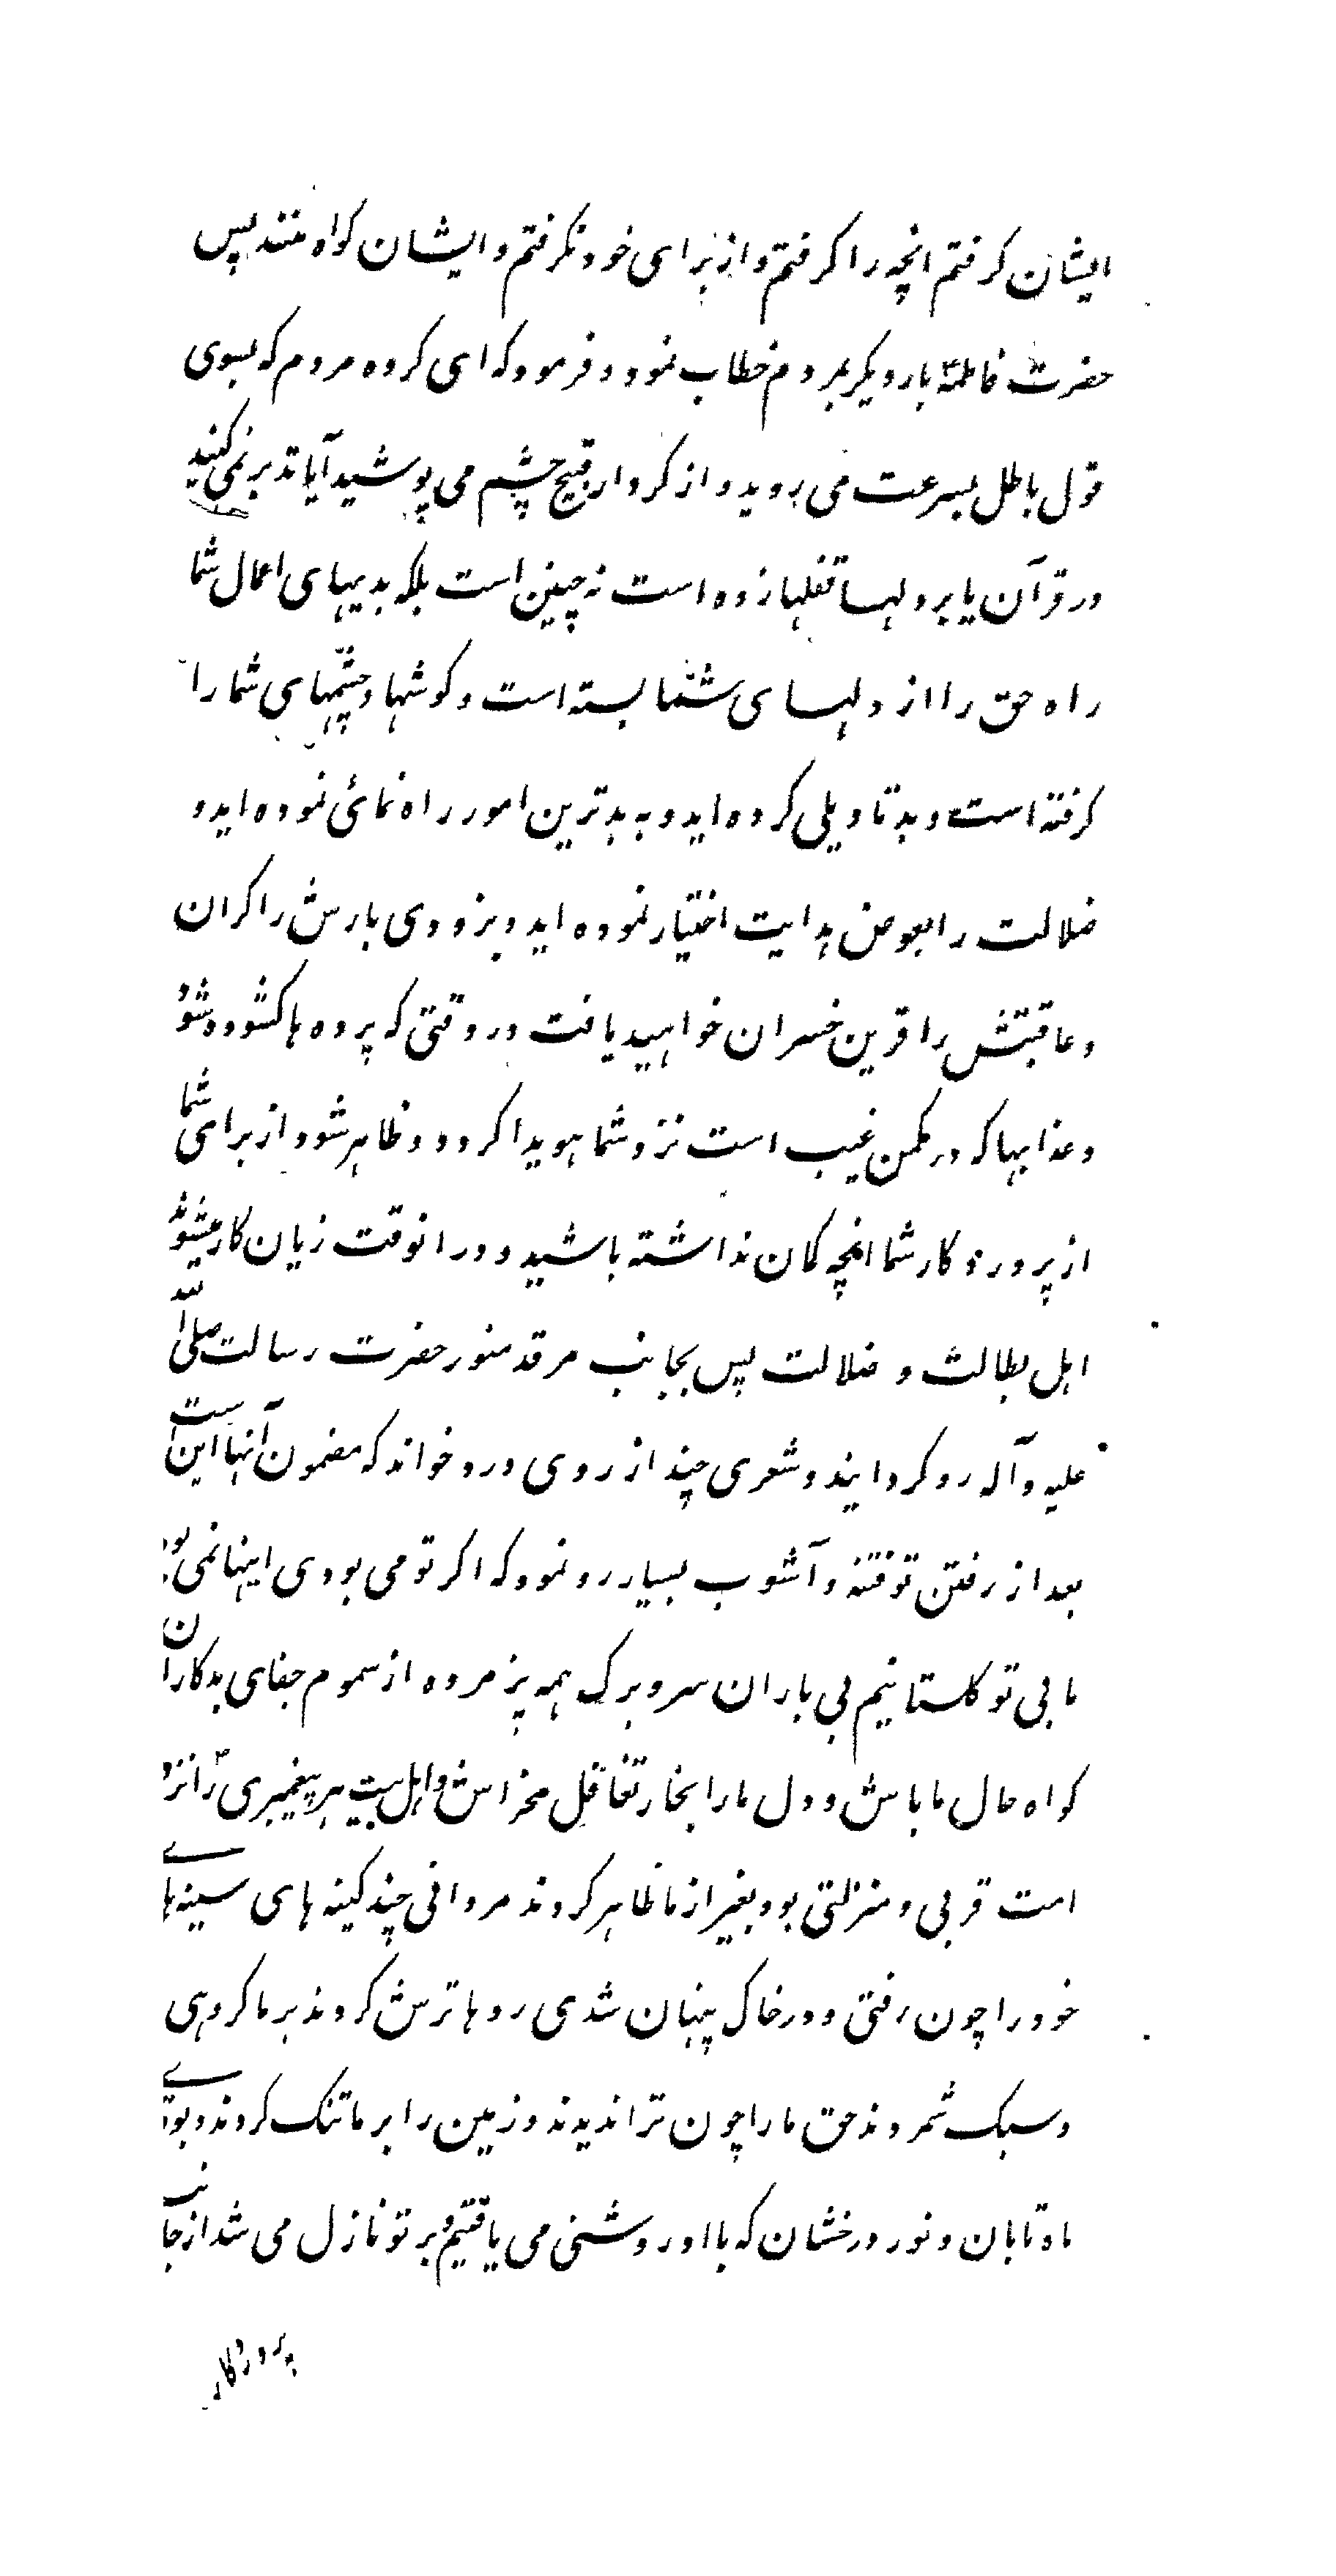 ایشان کرفتم انچه را کرفتم و از برای خود نکرفتم و ایشان کواه منند پس
حضرت فاطمه بار دیکر بمردم خطاب نمود و فرمود که ای کروه مردم که بسوی
قول باطل بسرعت می روید و از کردار قبیح چشم می پوشید آیا تدبر نمی کنید
در قرآن یا بر دلها قفلها زده است نه چنین است بلکه بدیهای اعمال شما
راه حق را از دلهای شما بسته است و کوشها و چشمهای شما را
کرفته است و بد تاویلی کرده اید و به بدترین امور راه نمائی نموده اید و
ضلالت را بعوض هدایت اختیار نموده اید و بزودی بارش را کران
و عاقبتش را قرین خسران خواهید یافت در وقتی که پرده ها کشوده شود
و عذابها که در مکمن غیب است نزد شما هویدا کردد و ظاهر شود از برای شما
از پرورد کار شما انچه کمان نداشته باشید و در انوقت زیان کار میشوند
اهل بطالت و ضلالت پس بجانب مرقد منور حضرت رسالت صلی الله
علیه و آله رو کردانید و شعری چند از روی درد خواند که مضمون آنها این است
بعد از رفتن تو فتنه و آشوب بسیار رو نمود که اکر تو می بودی اینها نمی بود
ما بی تو کلستانیم بی باران سر و برک همه پژمرده از سموم جفای بدکاران
کواه حال ما باش و دل ما را بخار تغافل مخراش و اهل بیت هر پیغمبری را نزد
امت قربی و منزلتی بود بغیر از ما ظاهر کردند مردانی چند کینه های سینه های
خود را چون رفتی و در خاک پنهان شدی روها ترش کردند بر ما کروهی
و سبک شمردند حق ما را چون ترا ندیدند و زمین را بر ما تنک کردند و بودی
ماه تابان و نور درخشان که با او روشنی می یافتیم و بر تو نازل می شد از جانب
پروردکار